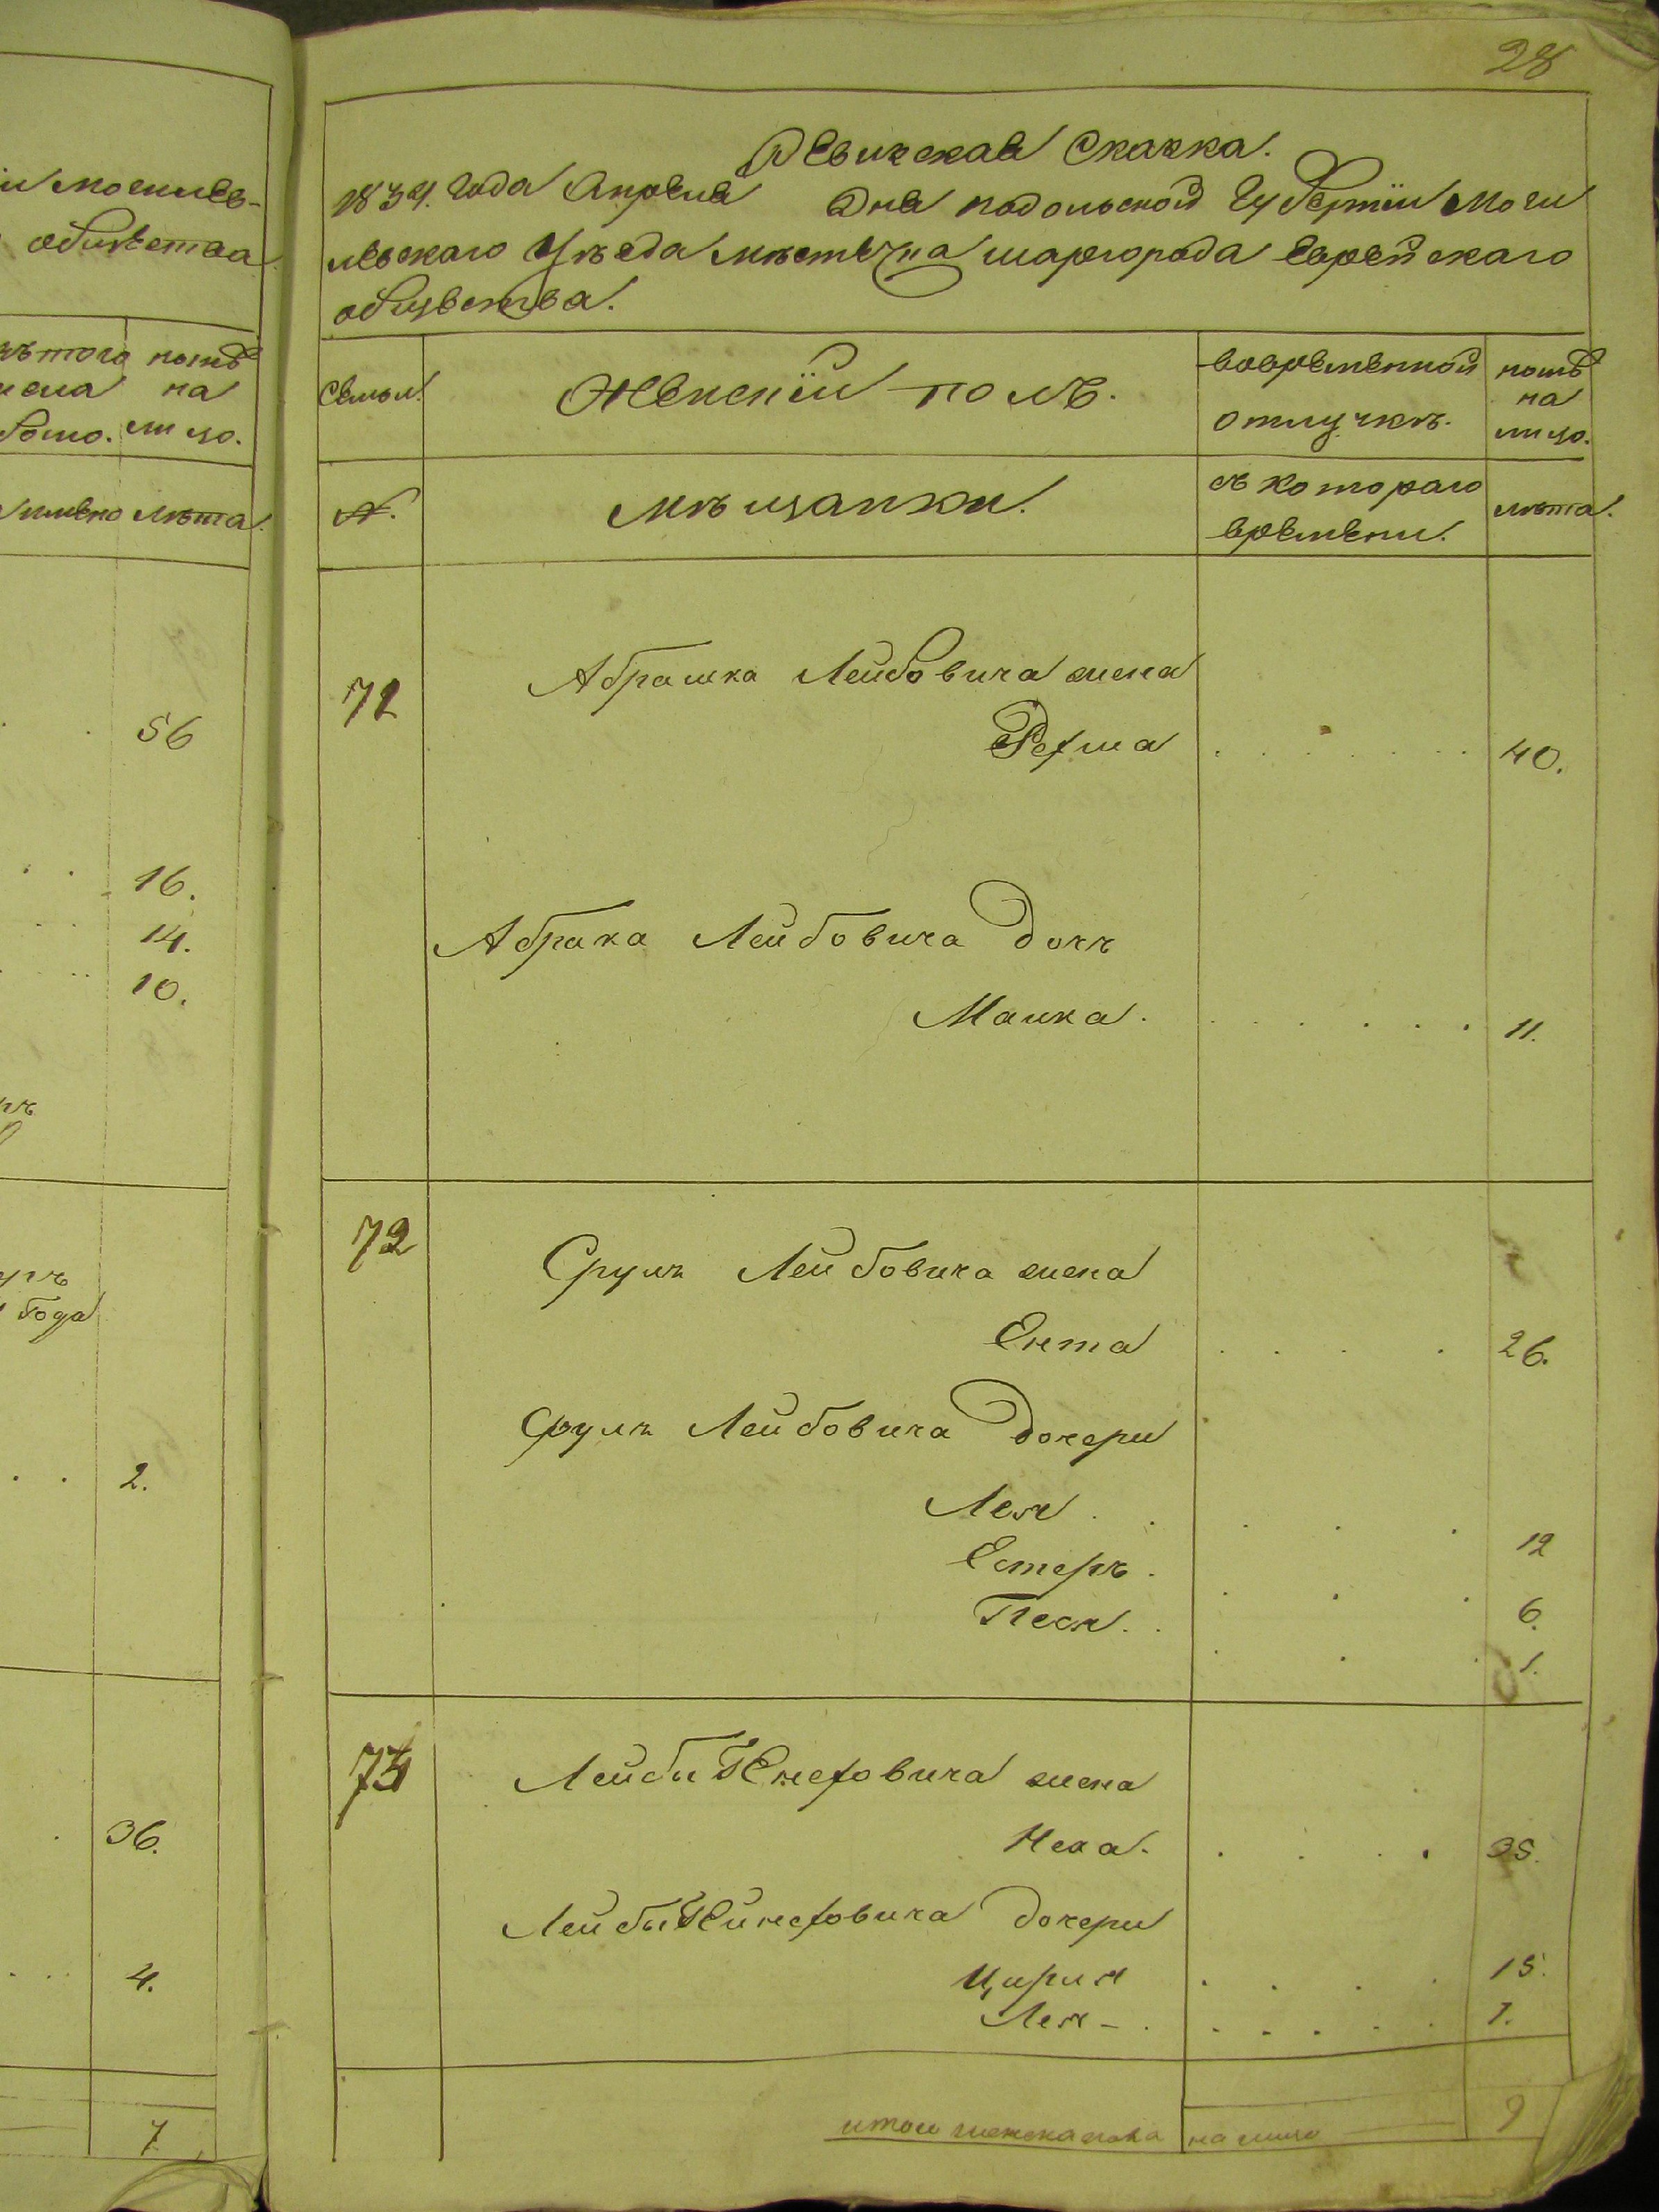 28
Ревизская Сказка.
1834. Года Апреля Дня подольской Губернїи Моги
левскаго Уѣзда мѣстечка шаргорода Еврейскаго
общества.
Семьи. Женскїи полъ. вовременной отлучкѣ. нынѣ на лицо.
№. Мѣщанки. съ котораго времени. лѣта.
71 Абрамка Лейбовича жена
40.
Абрама Лейбовича дочь
Маика. 11.
72 Сруль Лейбовича жена
Ента 26.
Сруль Лейбовича дочери
Лея 12
Естеръ. 6.
Песя. 1.
73 Лейбы жена
35.
Лейбы дочери
Циреля 15.
Лея 1.
итого женска пола на лицо 9
и могилев-
общества
нынѣ
на
лицо.
лѣта.
56
16.
14.
10.
года
2.
36.
4.
7